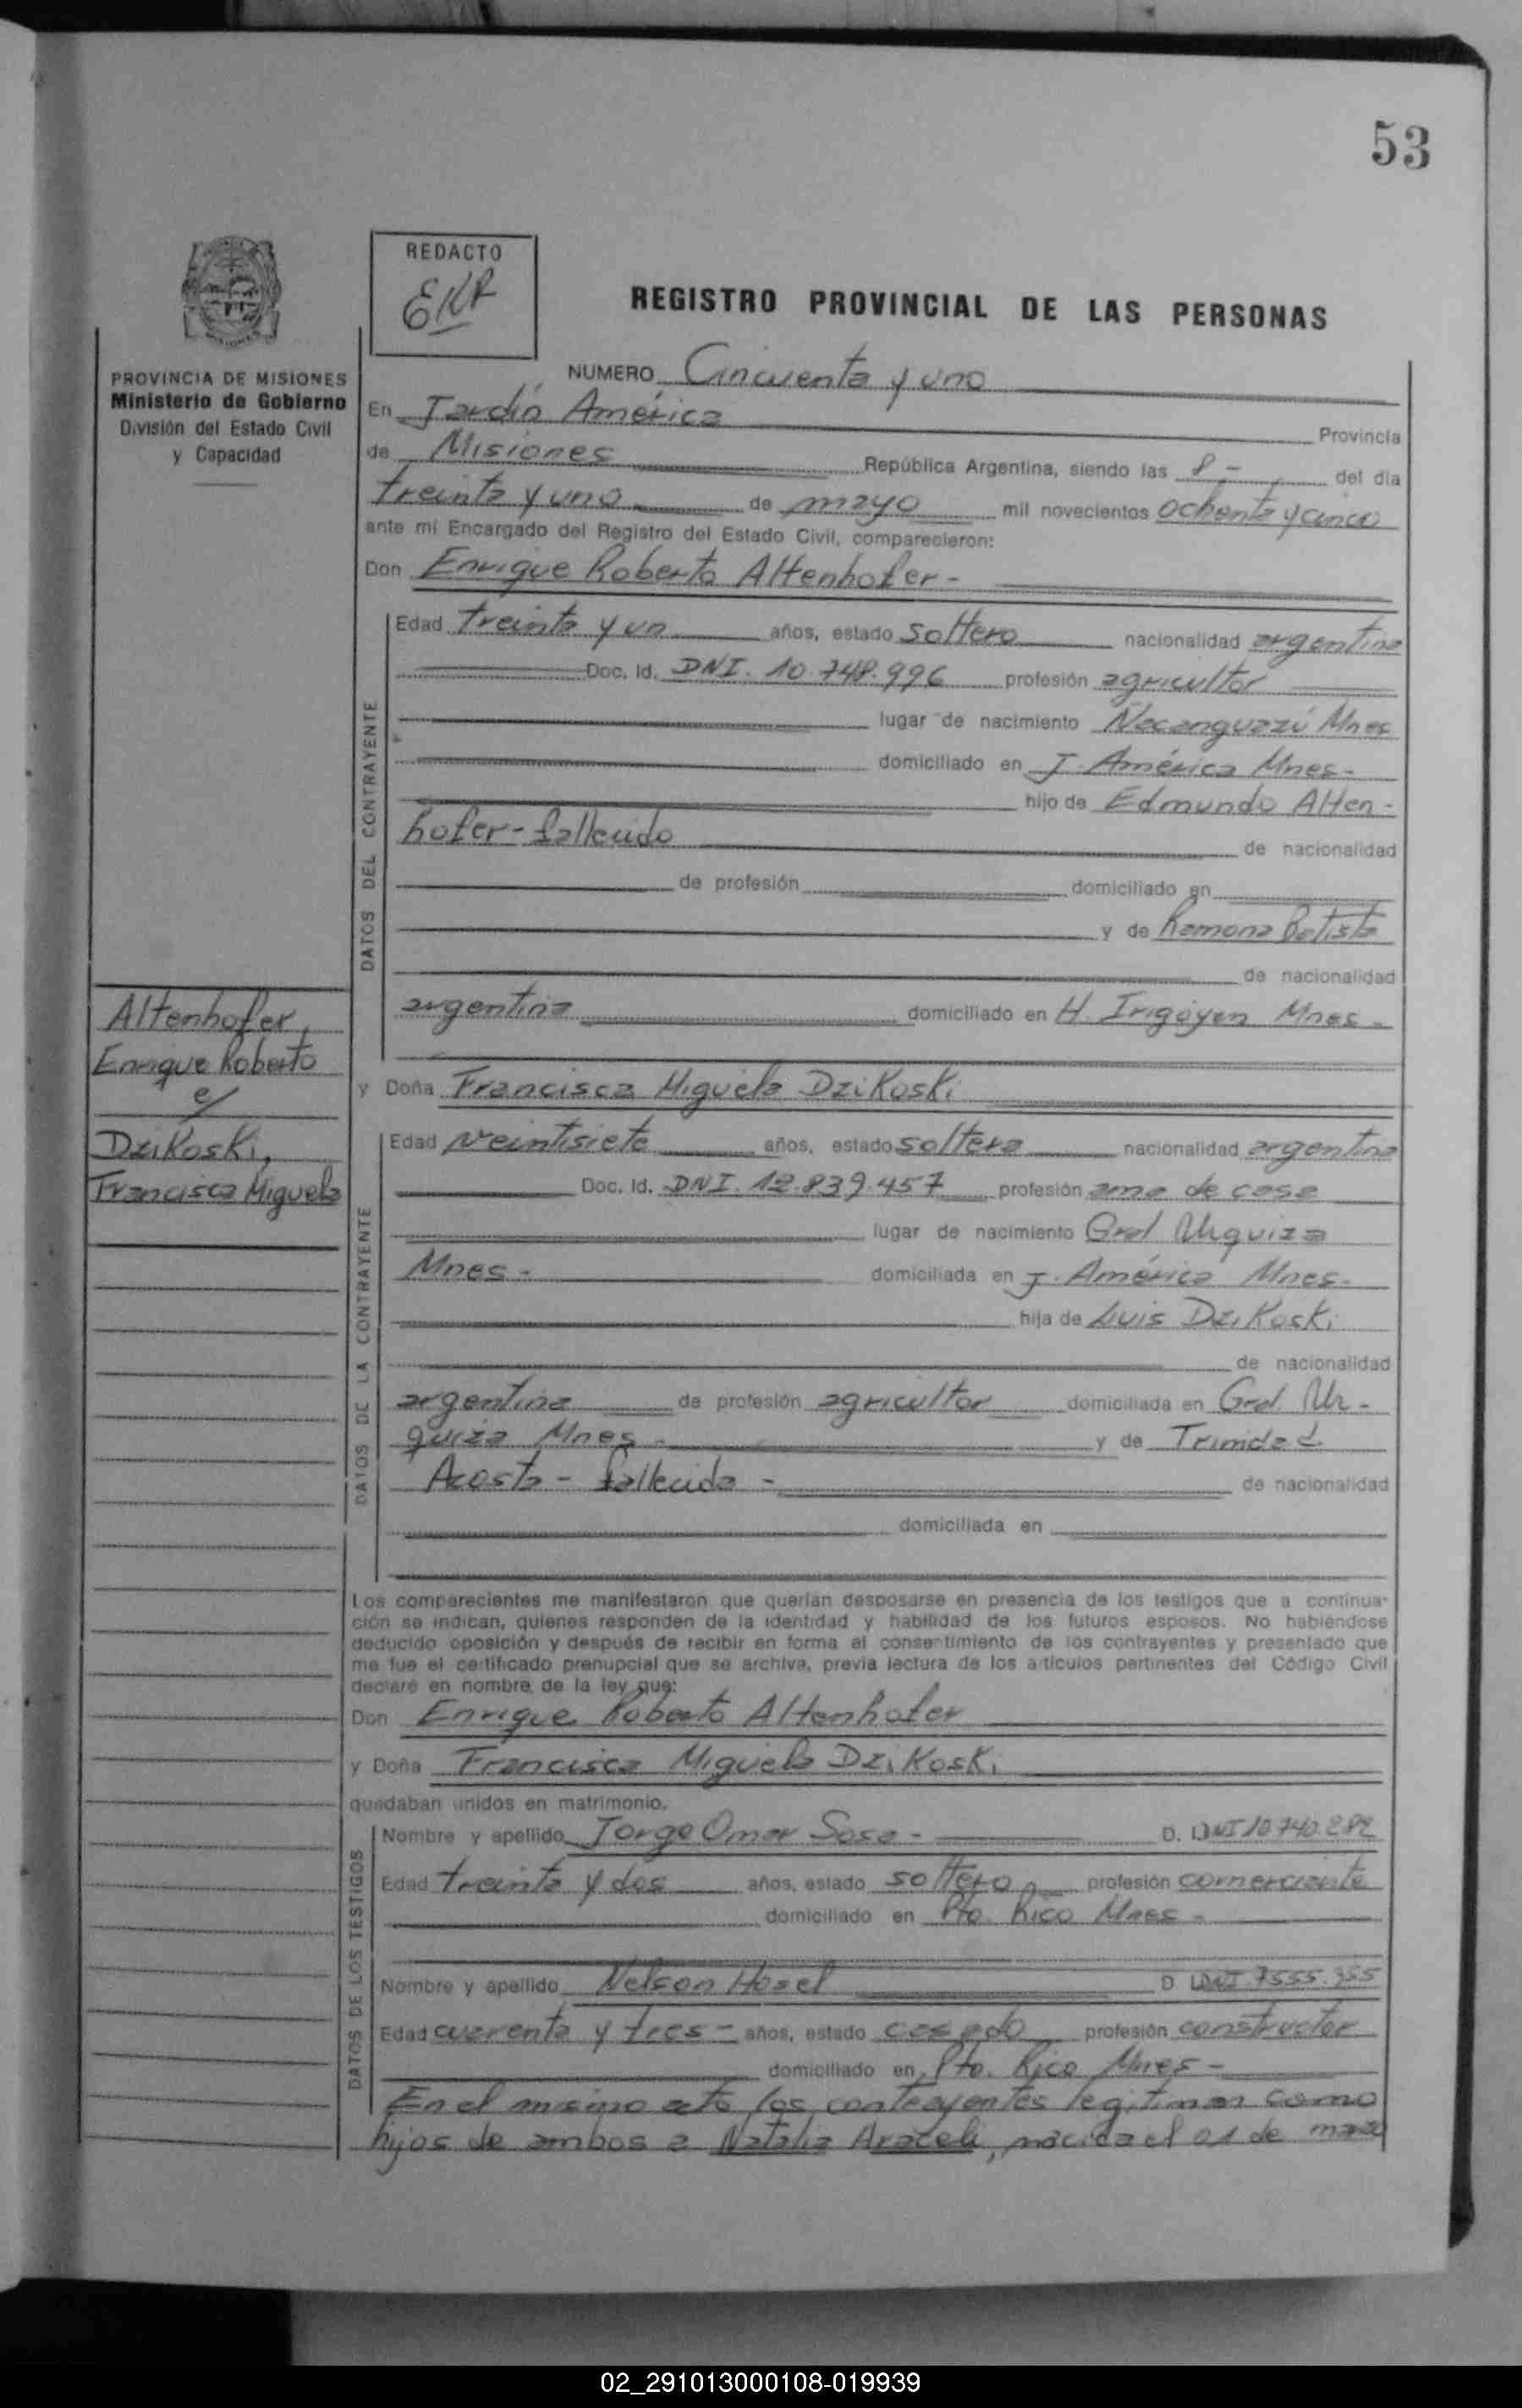 53
REDACTO
EKR
REGISTRO PROVINCIAL DE LAS PERSONAS
PROVINCIA DE MISIONES
Ministerio de Gobierno
División del Estado Civil
y Capacidad
NUMERO Cincuenta y uno
En Jardín América Provincia
de Misiones República Argentina, siendo las 8 - del día
treinta y uno de mayo mil novecientos ochenta y cinco
ante mi Encargado del Registro del Estado Civil, comparecieron:
Don Enrique Roberto Altenhofer -
DATOS DEL CONTRAYENTE
Edad treinta y un años, estado soltero nacionalidad argentina
Doc. Id. DNI. 10.748.996 profesión agricultor
lugar de nacimiento Ñacanguazú Mnes
domiciliado en J. América Mnes-
hijo de Edmundo Alten-
hofer - fallecido de nacionalidad
de profesión domiciliado en
y de Ramona Batista
de nacionalidad
argentina domiciliado en H. Irigoyen Mnes -
Altenhofer,
Enrique Roberto
c/
Dzikoski,
Francisca Miguela
y Doña Francisca Miguela Dzikoski
DATOS DE LA CONTRAYENTE
Edad veintisiete años, estado soltera nacionalidad argentina
Doc. Id. DNI. 12.839.457 profesión ama de casa
lugar de nacimiento Gral Urquiza
Mnes - domiciliada en J. América Mnes-
hija de Luis Dzikoski
de nacionalidad
argentina de profesión agricultor domiciliada en Gral. Ur-
quiza Mnes - y de Trinidad
Acosta - fallecida - de nacionalidad
domiciliada en
Los comparecientes me manifestaron que querían desposarse en presencia de los testigos que a continua-
ción se indican, quienes responden de la identidad y habilidad de los futuros esposos. No habiéndose
deducido oposición y después de recibir en forma el consentimiento de los contrayentes y presentado que
me fue el certificado prenupcial que se archiva, previa lectura de los artículos pertinentes del Código Civil
declaré en nombre de la ley que:
Don Enrique Roberto Altenhofer
y Doña Francisca Miguela Dzikoski
quedaban unidos en matrimonio.
DATOS DE LOS TESTIGOS
Nombre y apellido Jorge Omar Sosa - D. DNI 10.740.282
Edad treinta y dos años, estado soltero profesión comerciante
domiciliado en Pto. Rico Mnes -
Nombre y apellido Nelson Hosel D. DNI. 7555.355
Edad cuarenta y tres - años, estado casado profesión constructor
domiciliado en Pto. Rico Mnes -
En el mismo acto los contrayentes legitiman como
hijos de ambos a Natalia Araceli, nacida el 01 de
02_291013000108-019939